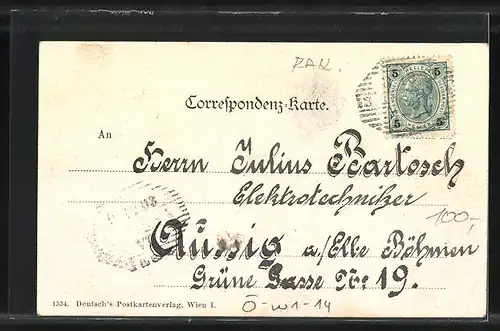 RAK.
5 5
5 5
Correspondenz-Karte.
An
Herrn Julius Bartosch
Elektrotechniker
100,-
Aussig a./Elbe Böhmen
Grüne Gasse No: 19.
1534. Deutsch's Postkartenverlag, Wien I.
Ö-W1-14